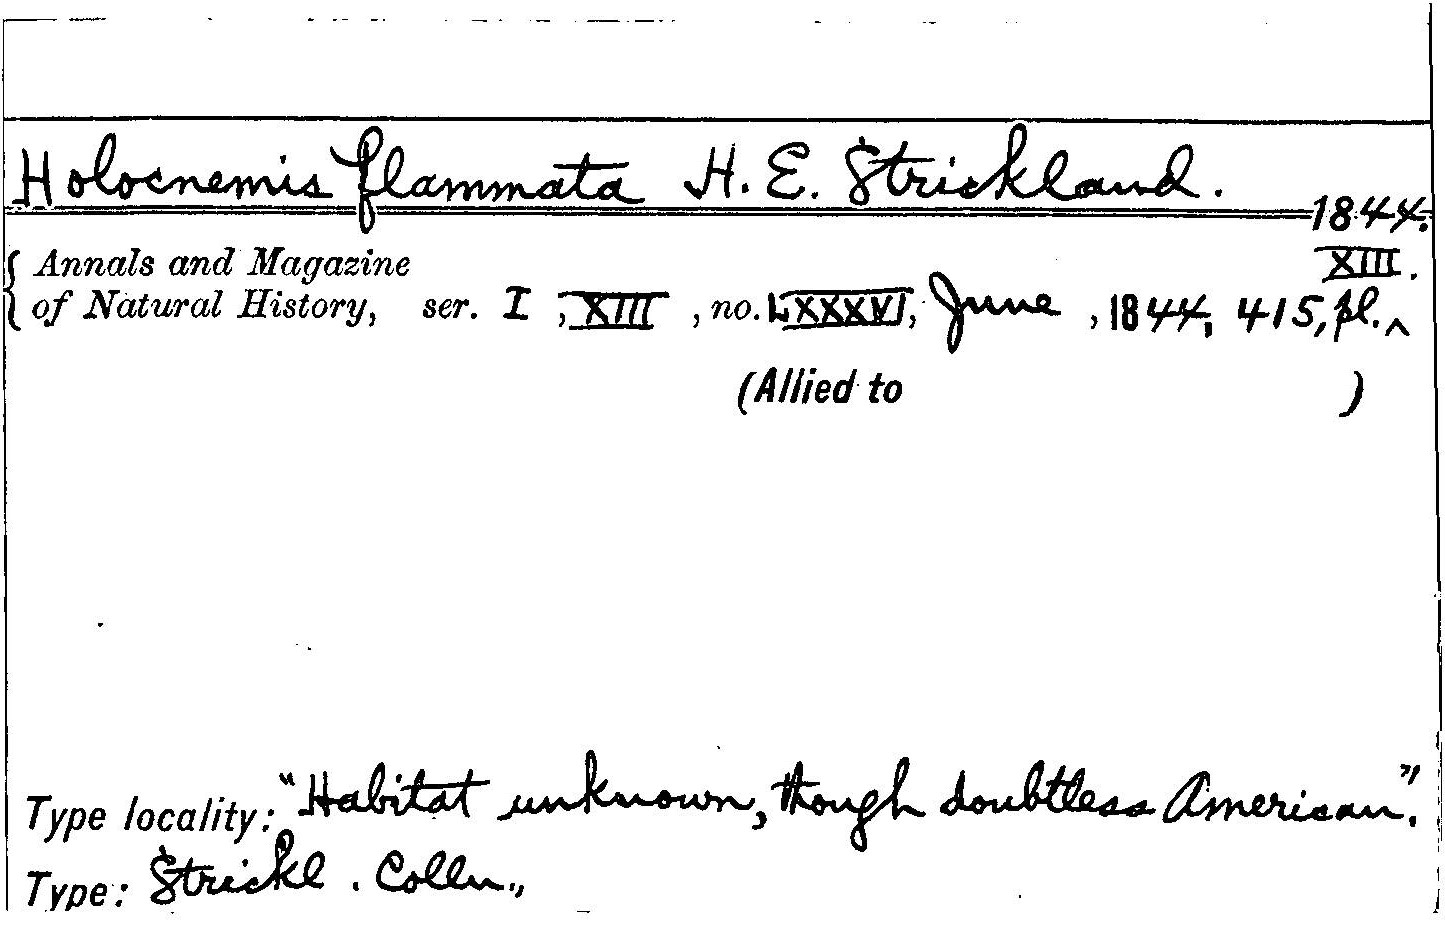 Holocnemis flammata H. E. Strickland.
1844.
Annals and Magazine
of Natural History, ser. I, XIII, no. LXXXVI, June, 1844, 415, pl. ^ XIII.
(Allied to )
Type locality: "Habitat unknown, though doubtless American".
Type: Strickl. Colln.,